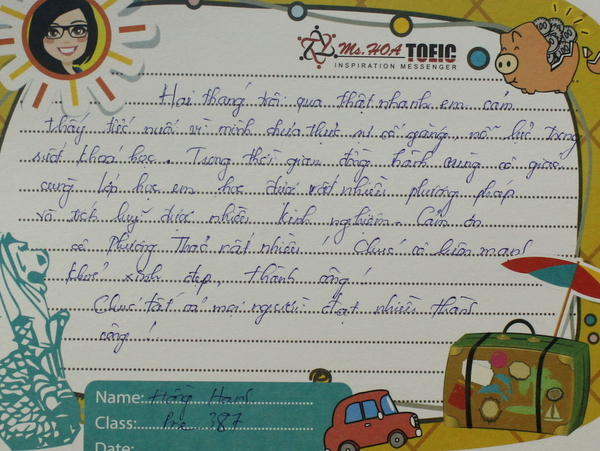 Ms. HOA TOEIC
INSPIRATION MESSENGER
Hai tháng trôi qua thật nhanh em cảm
thấy tiếc nuối vì mình chưa thực sự cố gắng, nỗ lực trong
suốt khoá học. Trong thời gian đồng hành cùng cô giáo
cùng lớp học em học được rất nhiều phương pháp
và tích luỹ được nhiều kinh nghiệm. Cảm ơn
cô Phương Thảo rất nhiều! Chúc cô luôn mạnh
khoẻ, xinh đẹp, thành công!
Chúc tất cả mọi người đạt nhiều thành
công!
Name: Hồng Hạnh
Class: Pre 387
Date: